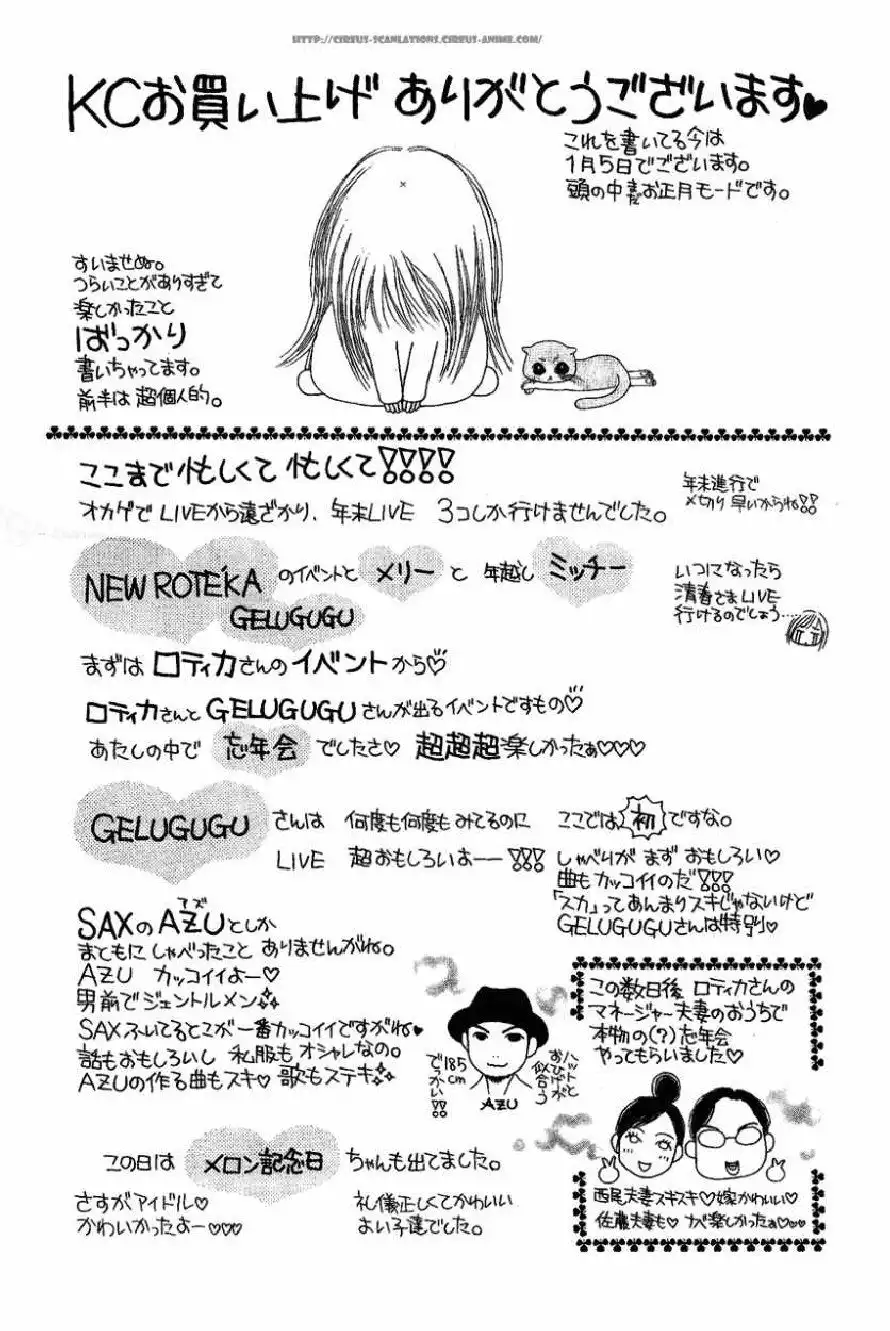 HTTP://CIREUS-SCANLATIONS.CIREUS-ANIME.COM/
KCお買い上げ ありがとうございます♥
これを書いてる今は
1月5日でございます。
頭の中まだお正月モードです。
すいませぬ。
つらいことがありすぎて
楽しかったこと
ばっかり
書いちゃってます。
前半は 超個人的。
ここまで忙しくて 忙しくて!!!!
オカゲで LIVEから遠ざかり、年末LIVE 3コしか行けませんでした。
年末進行で
〆切り 早いからね!!
NEW ROTE'KA のイベントと メリー と 年越し ミッチー
GELUGUGU
いつになったら
清春さまLIVE
行けるのでしょう…
まずは ロティカさんのイベントから♡
ロティカさんと GELUGUGUさんが出るイベントですもの♡
あたしの中で 忘年会 でしたさ♡ 超超超楽しかったぁ♡♡♡
GELUGUGU さんは 何度も何度もみてるのに ここでは初ですな。
LIVE 超おもしろいよーー!!!
しゃべりが まず おもしろい♡
曲もカッコイイのだ!!!
「スカ」ってあんまりスキじゃないけど
GELUGUGUさんは特別♡
アズ
SAXのAZUとしか
まともに しゃべったこと ありませんがね。
AZU カッコイイよー♡
男前でジェントルメン
SAXふいてるトコが一番カッコイイですがね♥
話もおもしろいし 私服も オシャレなの。
AZUの作る曲もスキ♡ 歌もステキ
ハットと
おひげが
似合う
185cm
でっかい!!
AZU
この数日後 ロティカさんの
マネージャー夫妻のおうちで
本物の(?)忘年会
やってもらいました♡
西尾夫妻スキスキ♡嫁かわいい♡
佐藤夫妻も♡ ナベ楽しかったぁ♡♡♡
この日は メロン記念日 ちゃんも出てました。
さすがアイドル♡
かわいかったよー♡♡♡
礼儀正しくてかわいい
よい子達でした。